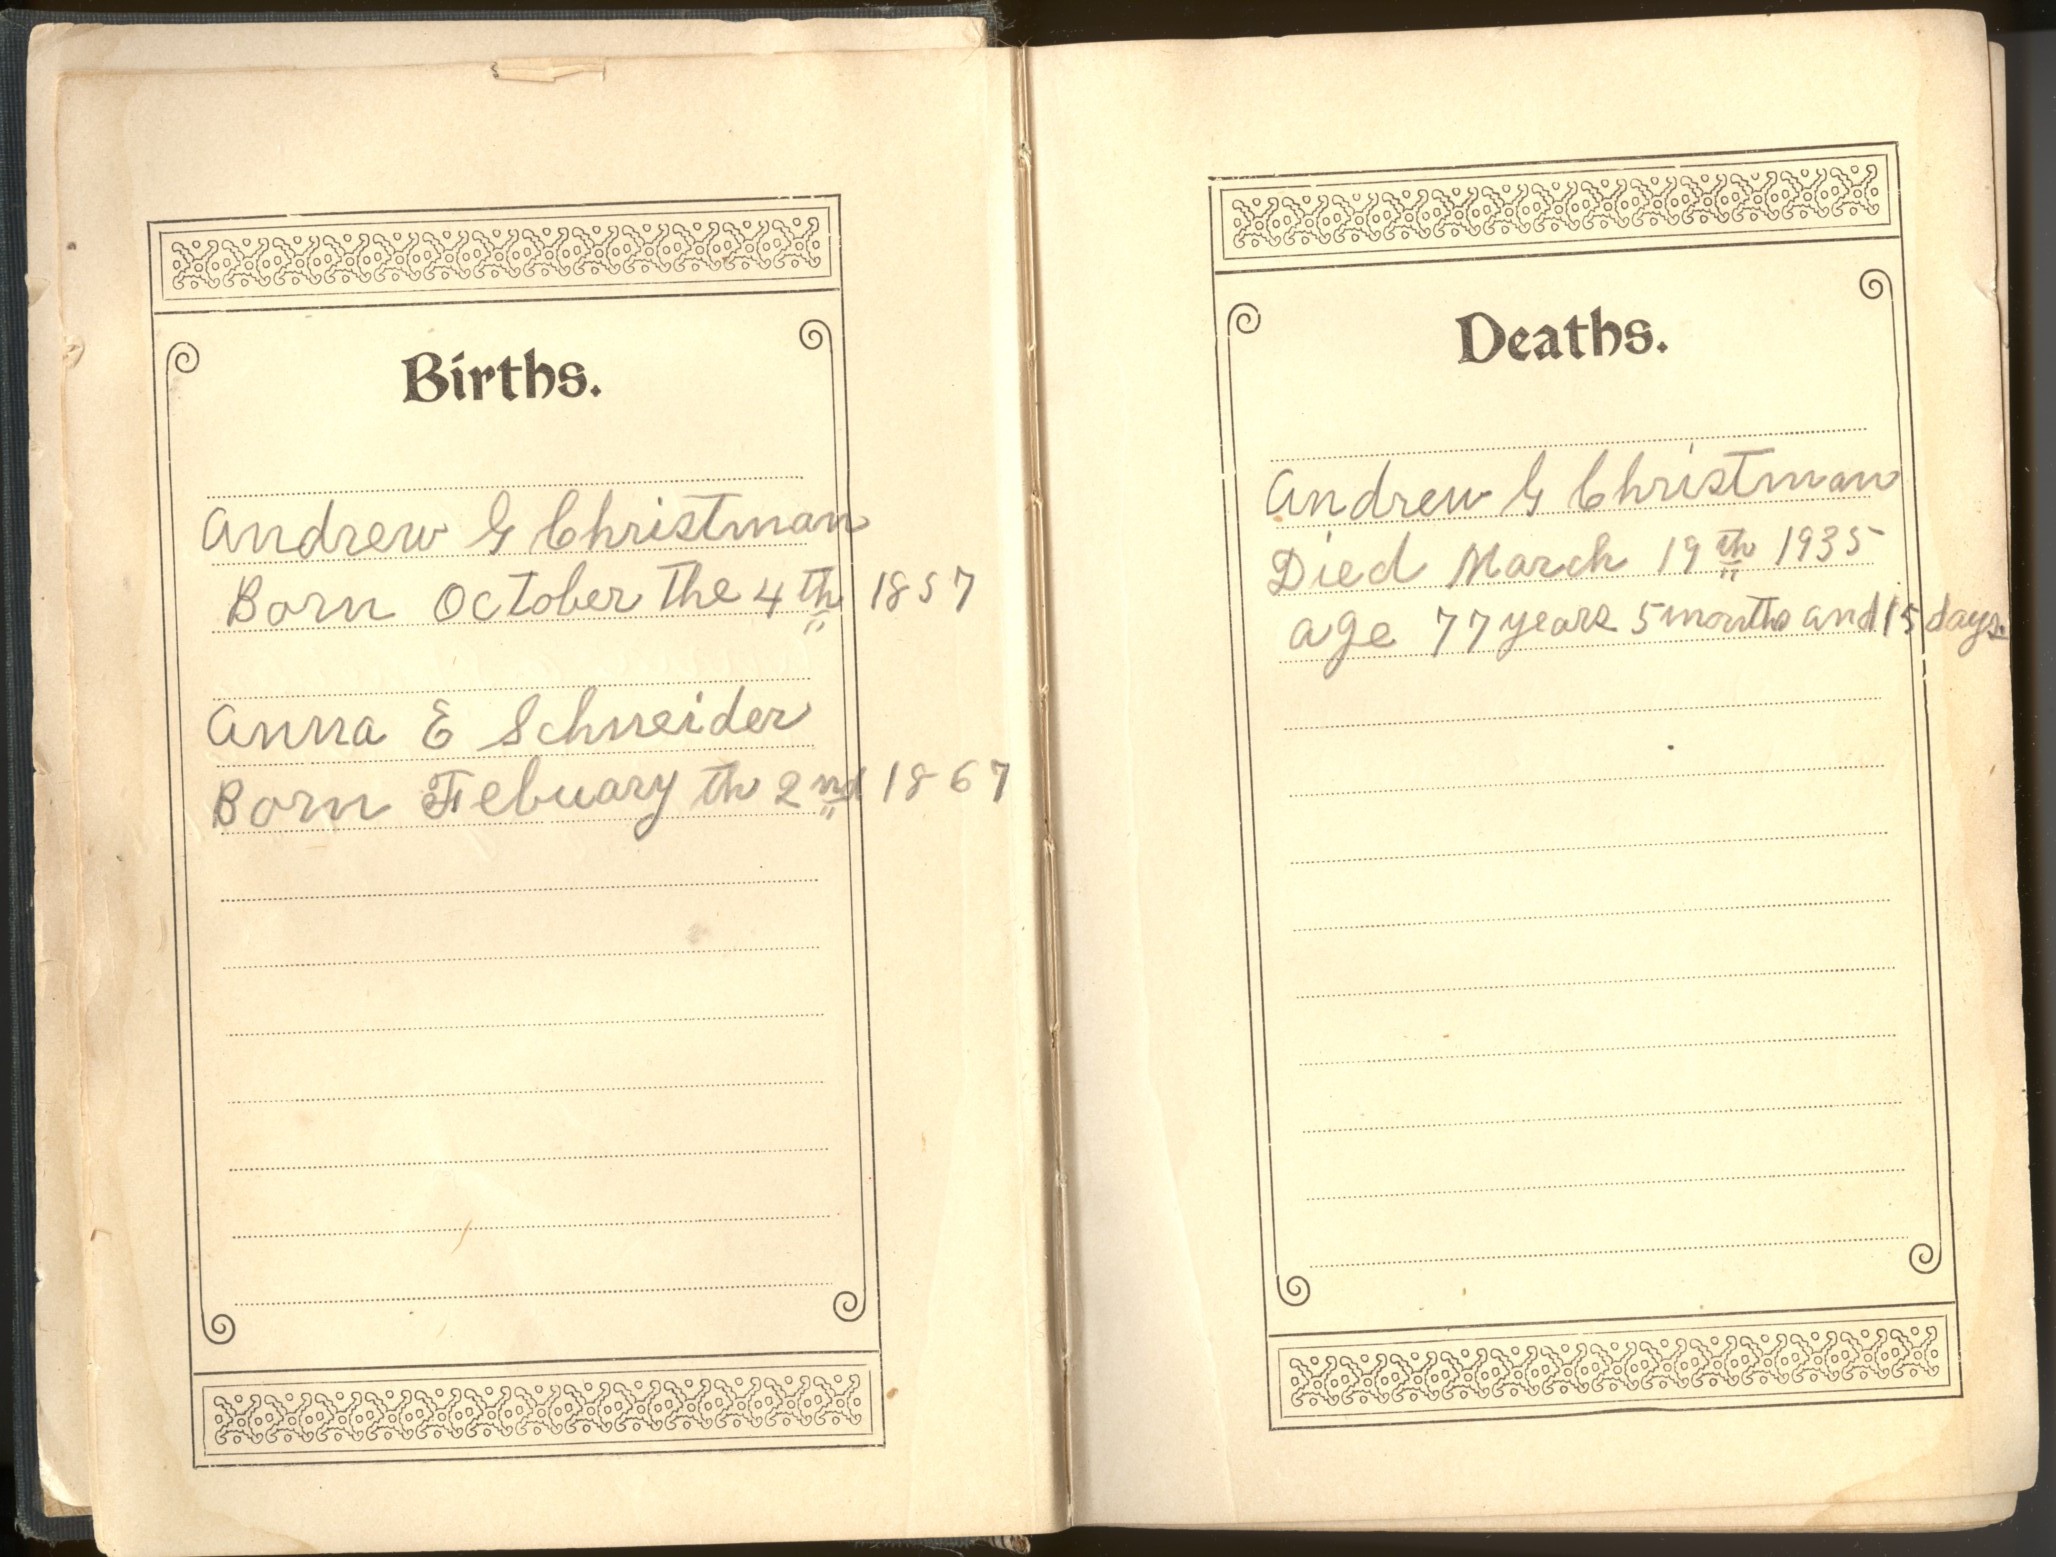 Births.
Andrew G Christman
Born October the 4th 1857
Anna E Schneider
Born Febuary th 2nd 1867
Deaths.
Andrew G Christman
Died March 19th 1935
age 77 years 5 months and 15 days.